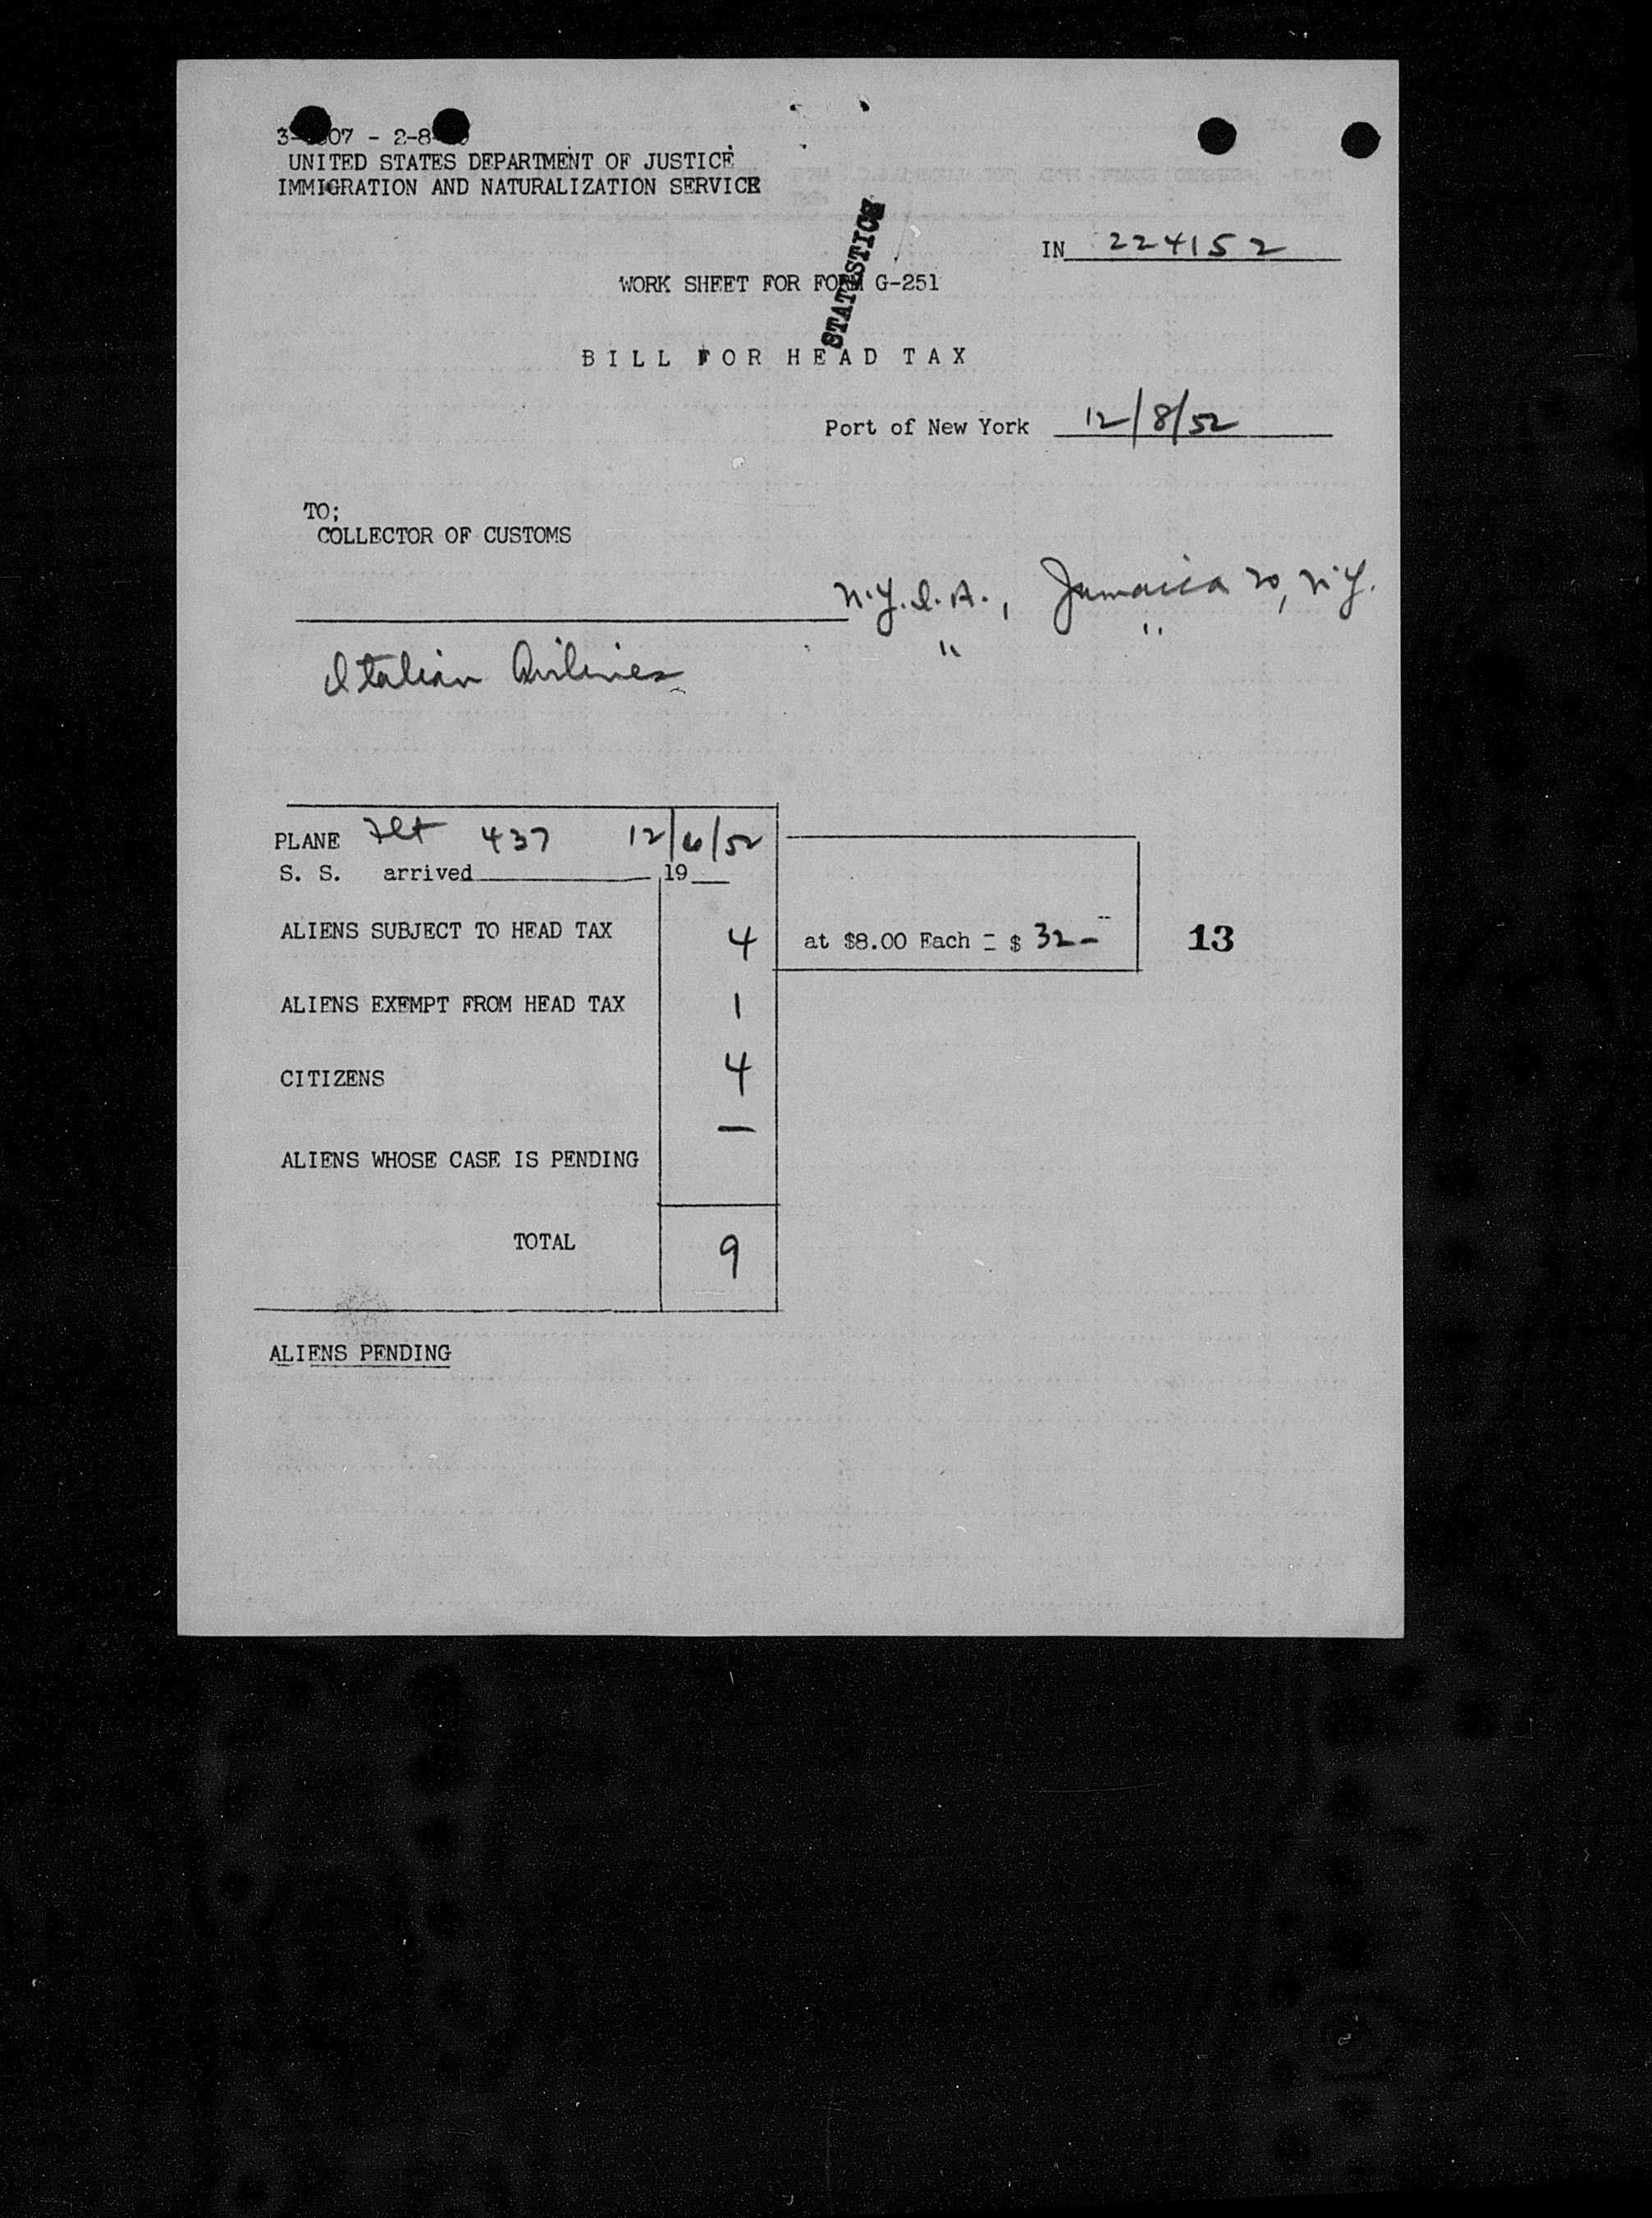 07 - 2-8
UNITED STATES DEPARTMENT OF JUSTICE
IMMIGRATION AND NATURALIZATION SERVICE
STATISTICS
IN 224152
WORK SHEET FOR FORM G-251
BILL FOR HEAD TAX
Port of New York 12/8/52
TO;
COLLECTOR OF CUSTOMS
N.Y.I.A., Jamaica 20, N.Y.
" "
Italian Airlines
PLANE Flt 437 12/6/52
S. S. arrived 19
ALIENS SUBJECT TO HEAD TAX 4 at $8.00 Each = $ 32 -- 13
ALIENS EXEMPT FROM HEAD TAX 1
CITIZENS 4
—
ALIENS WHOSE CASE IS PENDING
TOTAL 9
ALIENS PENDING